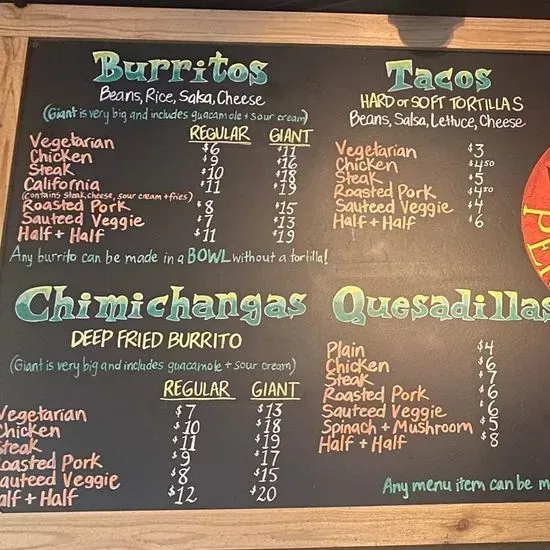 Burritos
Beans, Rice, Salsa, Cheese
(Giant is very big and includes guacamole + sour cream)
REGULAR GIANT
Vegetarian $6 $11
Chicken $9 $16
Steak $10 $18
California $11 $19
(contains steak, cheese, sour cream + fries)
Roasted Pork $8 $15
Sauteed Veggie $7 $13
Half + Half $11 $19
Any burrito can be made in a BOWL without a tortilla!
Tacos
HARD or SOFT TORTILLAS
Beans, Salsa, Lettuce, Cheese
Vegetarian $3
Chicken $4.50
Steak $5
Roasted Pork $4.50
Sauteed Veggie $4
Half + Half $6
Chimichangas
DEEP FRIED BURRITO
(Giant is very big and includes guacamole + sour cream)
REGULAR GIANT
Vegetarian $7 $13
Chicken $10 $18
Steak $11 $19
Roasted Pork $9 $17
Sauteed Veggie $8 $15
Half + Half $12 $20
Quesadillas
Plain $4
Chicken $6
Steak $7
Roasted Pork $6
Sauteed Veggie $6
Spinach + Mushroom $5
Half + Half $8
Any menu item can be m